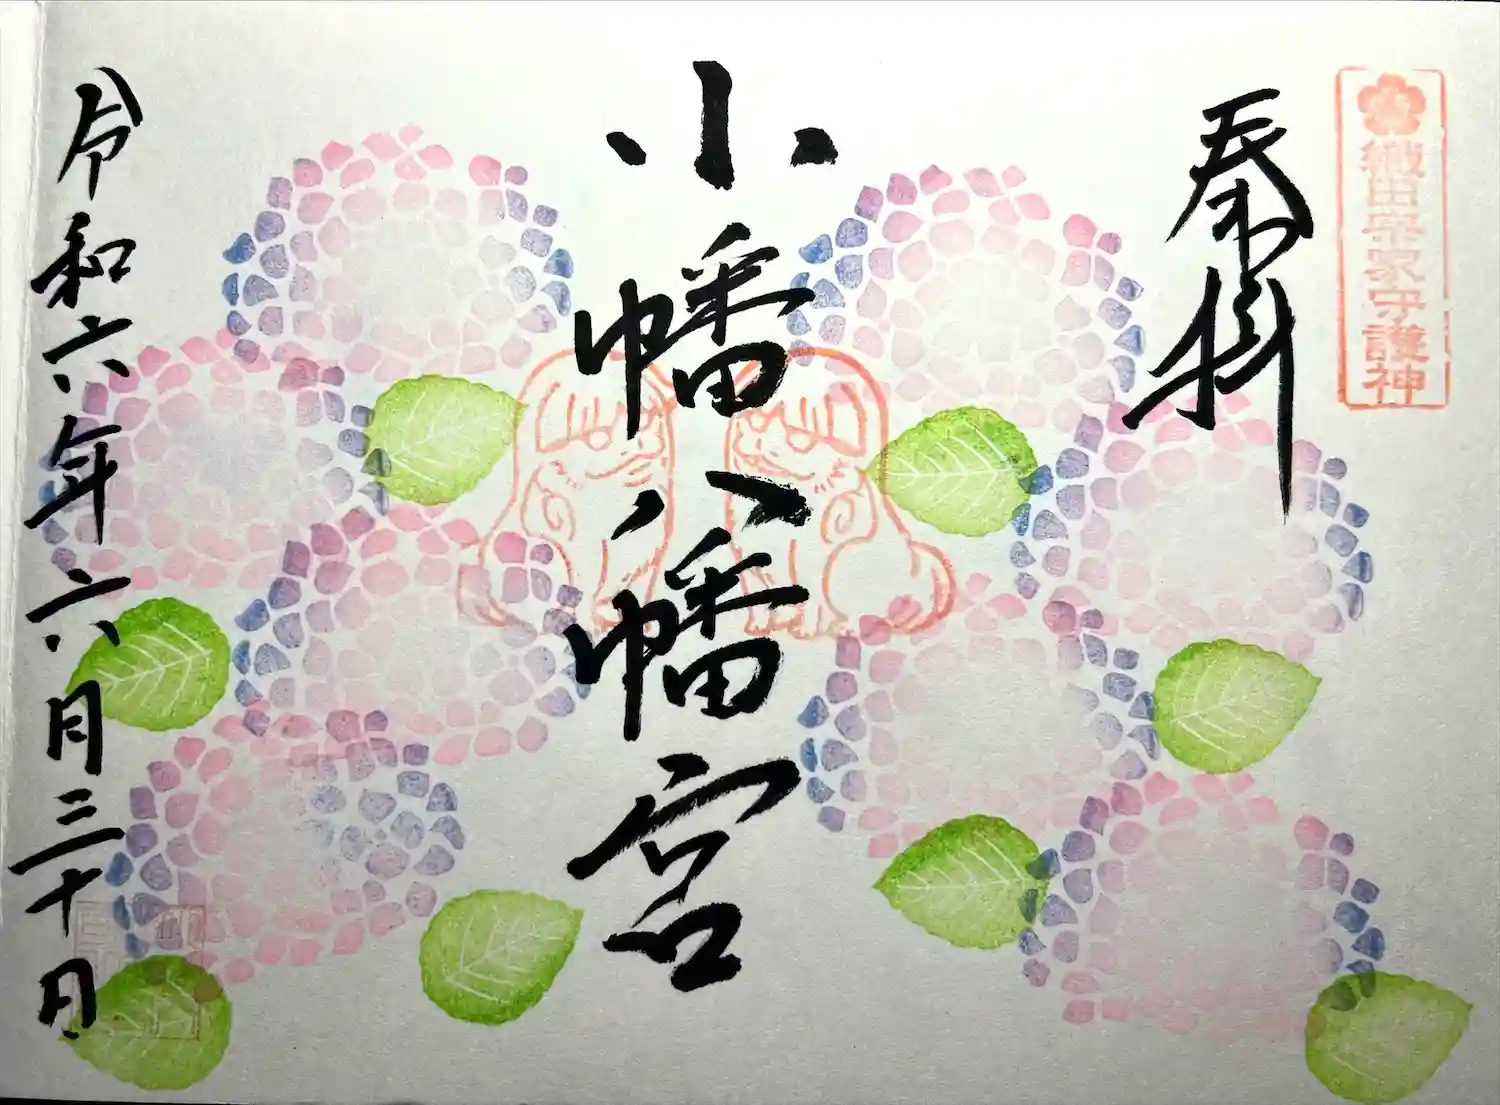 織田宗家守護神
奉拝
小幡八幡宮
令和六年六月三十日